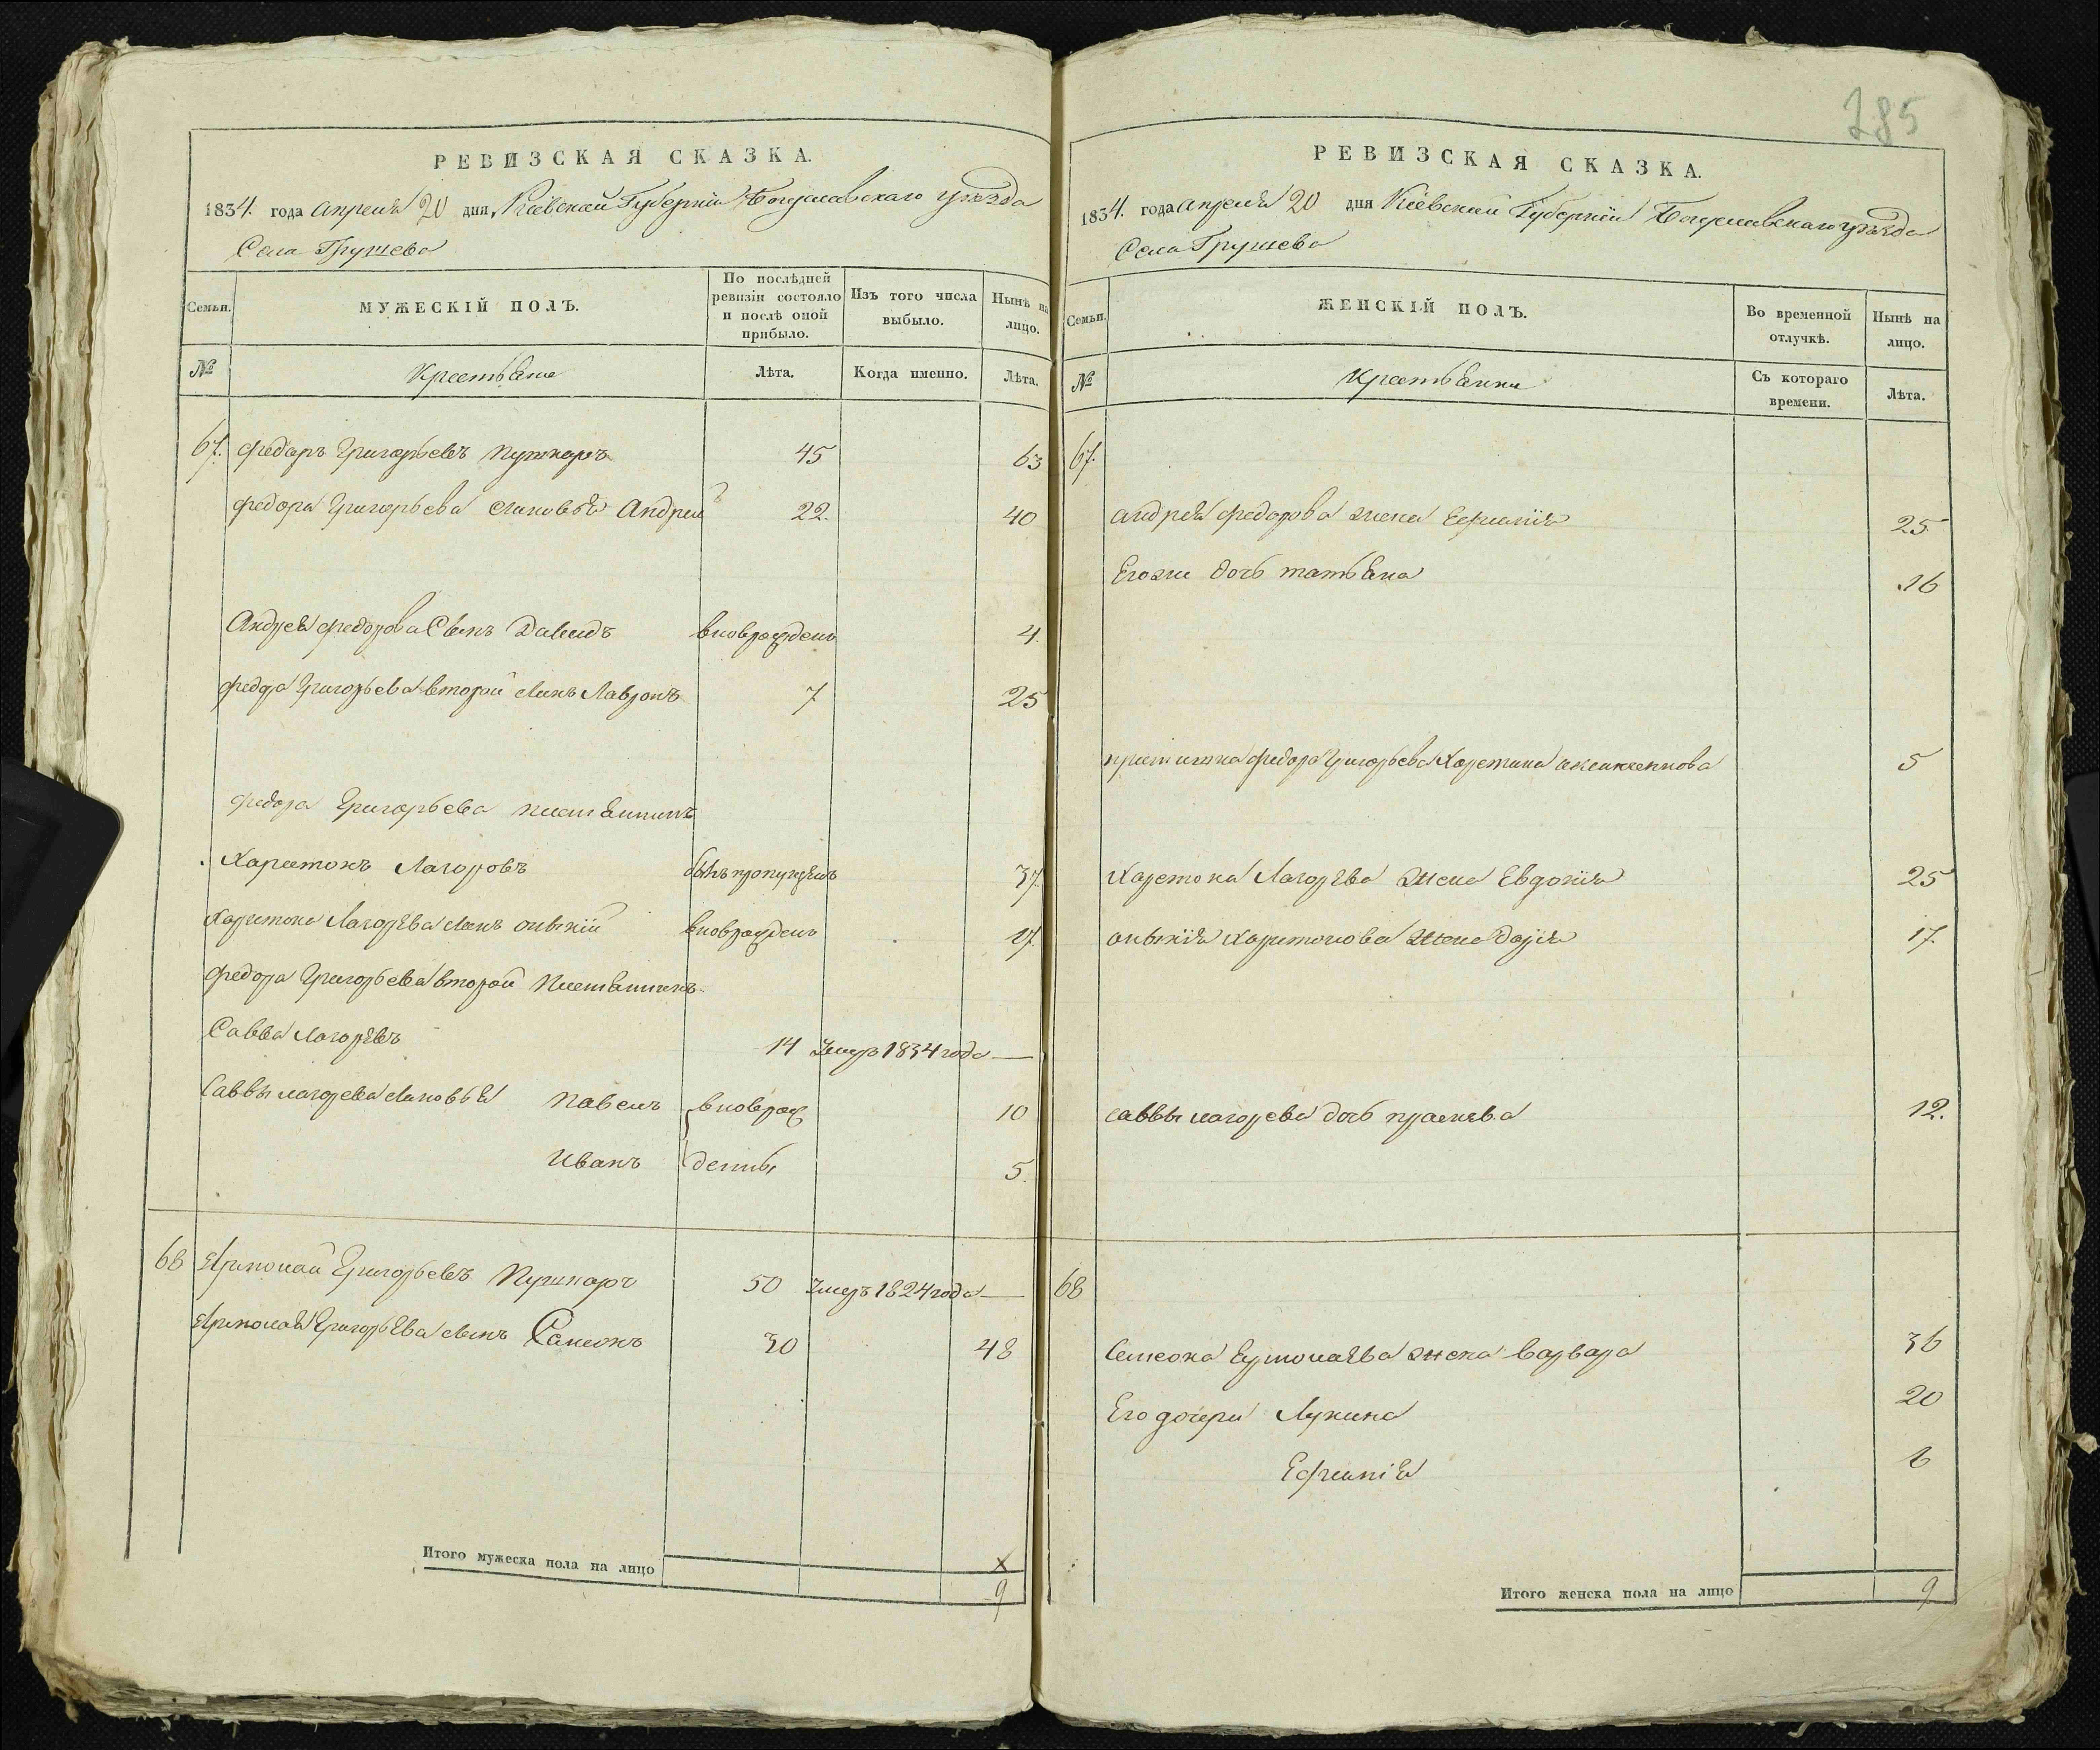 РЕВИЗСКАЯ СКАЗКА.
1834. года апреля 20 дня Киевской Губернии Богуславскаго уезда
Села Грушева
Семьи.
МУЖЕСКІЙ ПОЛЪ.
По послѣдней ревизіи состояло и послѣ оной прибыло.
Изъ того числа выбыло.
Нынѣ на лицо.
№
Крестьяне
Лѣта.
Когда именно.
Лѣта.
67. Федоръ Григорьевъ Пушкаръ 45 63
Федора Григорьева сыновья Андрей 22. 40
Андрея Федорова Сынъ Давидъ вноврожденъ 4.
Федора Григорьева второй сынъ Лавронъ 7 25
Федора Григорьева племянникъ
Харитонъ Лагоровъ былъ пропущенъ 37.
Харитона Лагорева сынъ 17.
вноврожденъ
Федора Григорьева второй племянникъ
Савва Лагоревъ 14 Умеръ 1834 года —
Саввы лагорева сыновья Павелъ вноврож 10
Иванъ денны 5.
68 Ярмолай Григорьевъ Пушкаръ 50 Умеръ 1824 года —
Ярмолая Григорьева сынъ Самсонъ 30 48
Итого мужеска пола на лицо
9
285
РЕВИЗСКАЯ СКАЗКА.
1834. года апреля 20 дня Киевской Губернии Богуславскаго уезда
Села Грушева
Семьи.
ЖЕНСКІЙ ПОЛЪ.
Во временной отлучкѣ.
Нынѣ на лицо.
№
Крестьянки
Съ котораго времени.
Лѣта.
67.
андрея Федорова жена Ефимия 25
Егоже дочь татьяна 16
Федора Григорьева 5
Харитона Лагорева жена Евдокия 25
Харитонова жена дария 17.
саввы лагорева дочь 12.
68
Самсона Ермолаева жена варвара 36
Его дочери Лукина 20
Ефимія 6
Итого женска пола на лицо 9